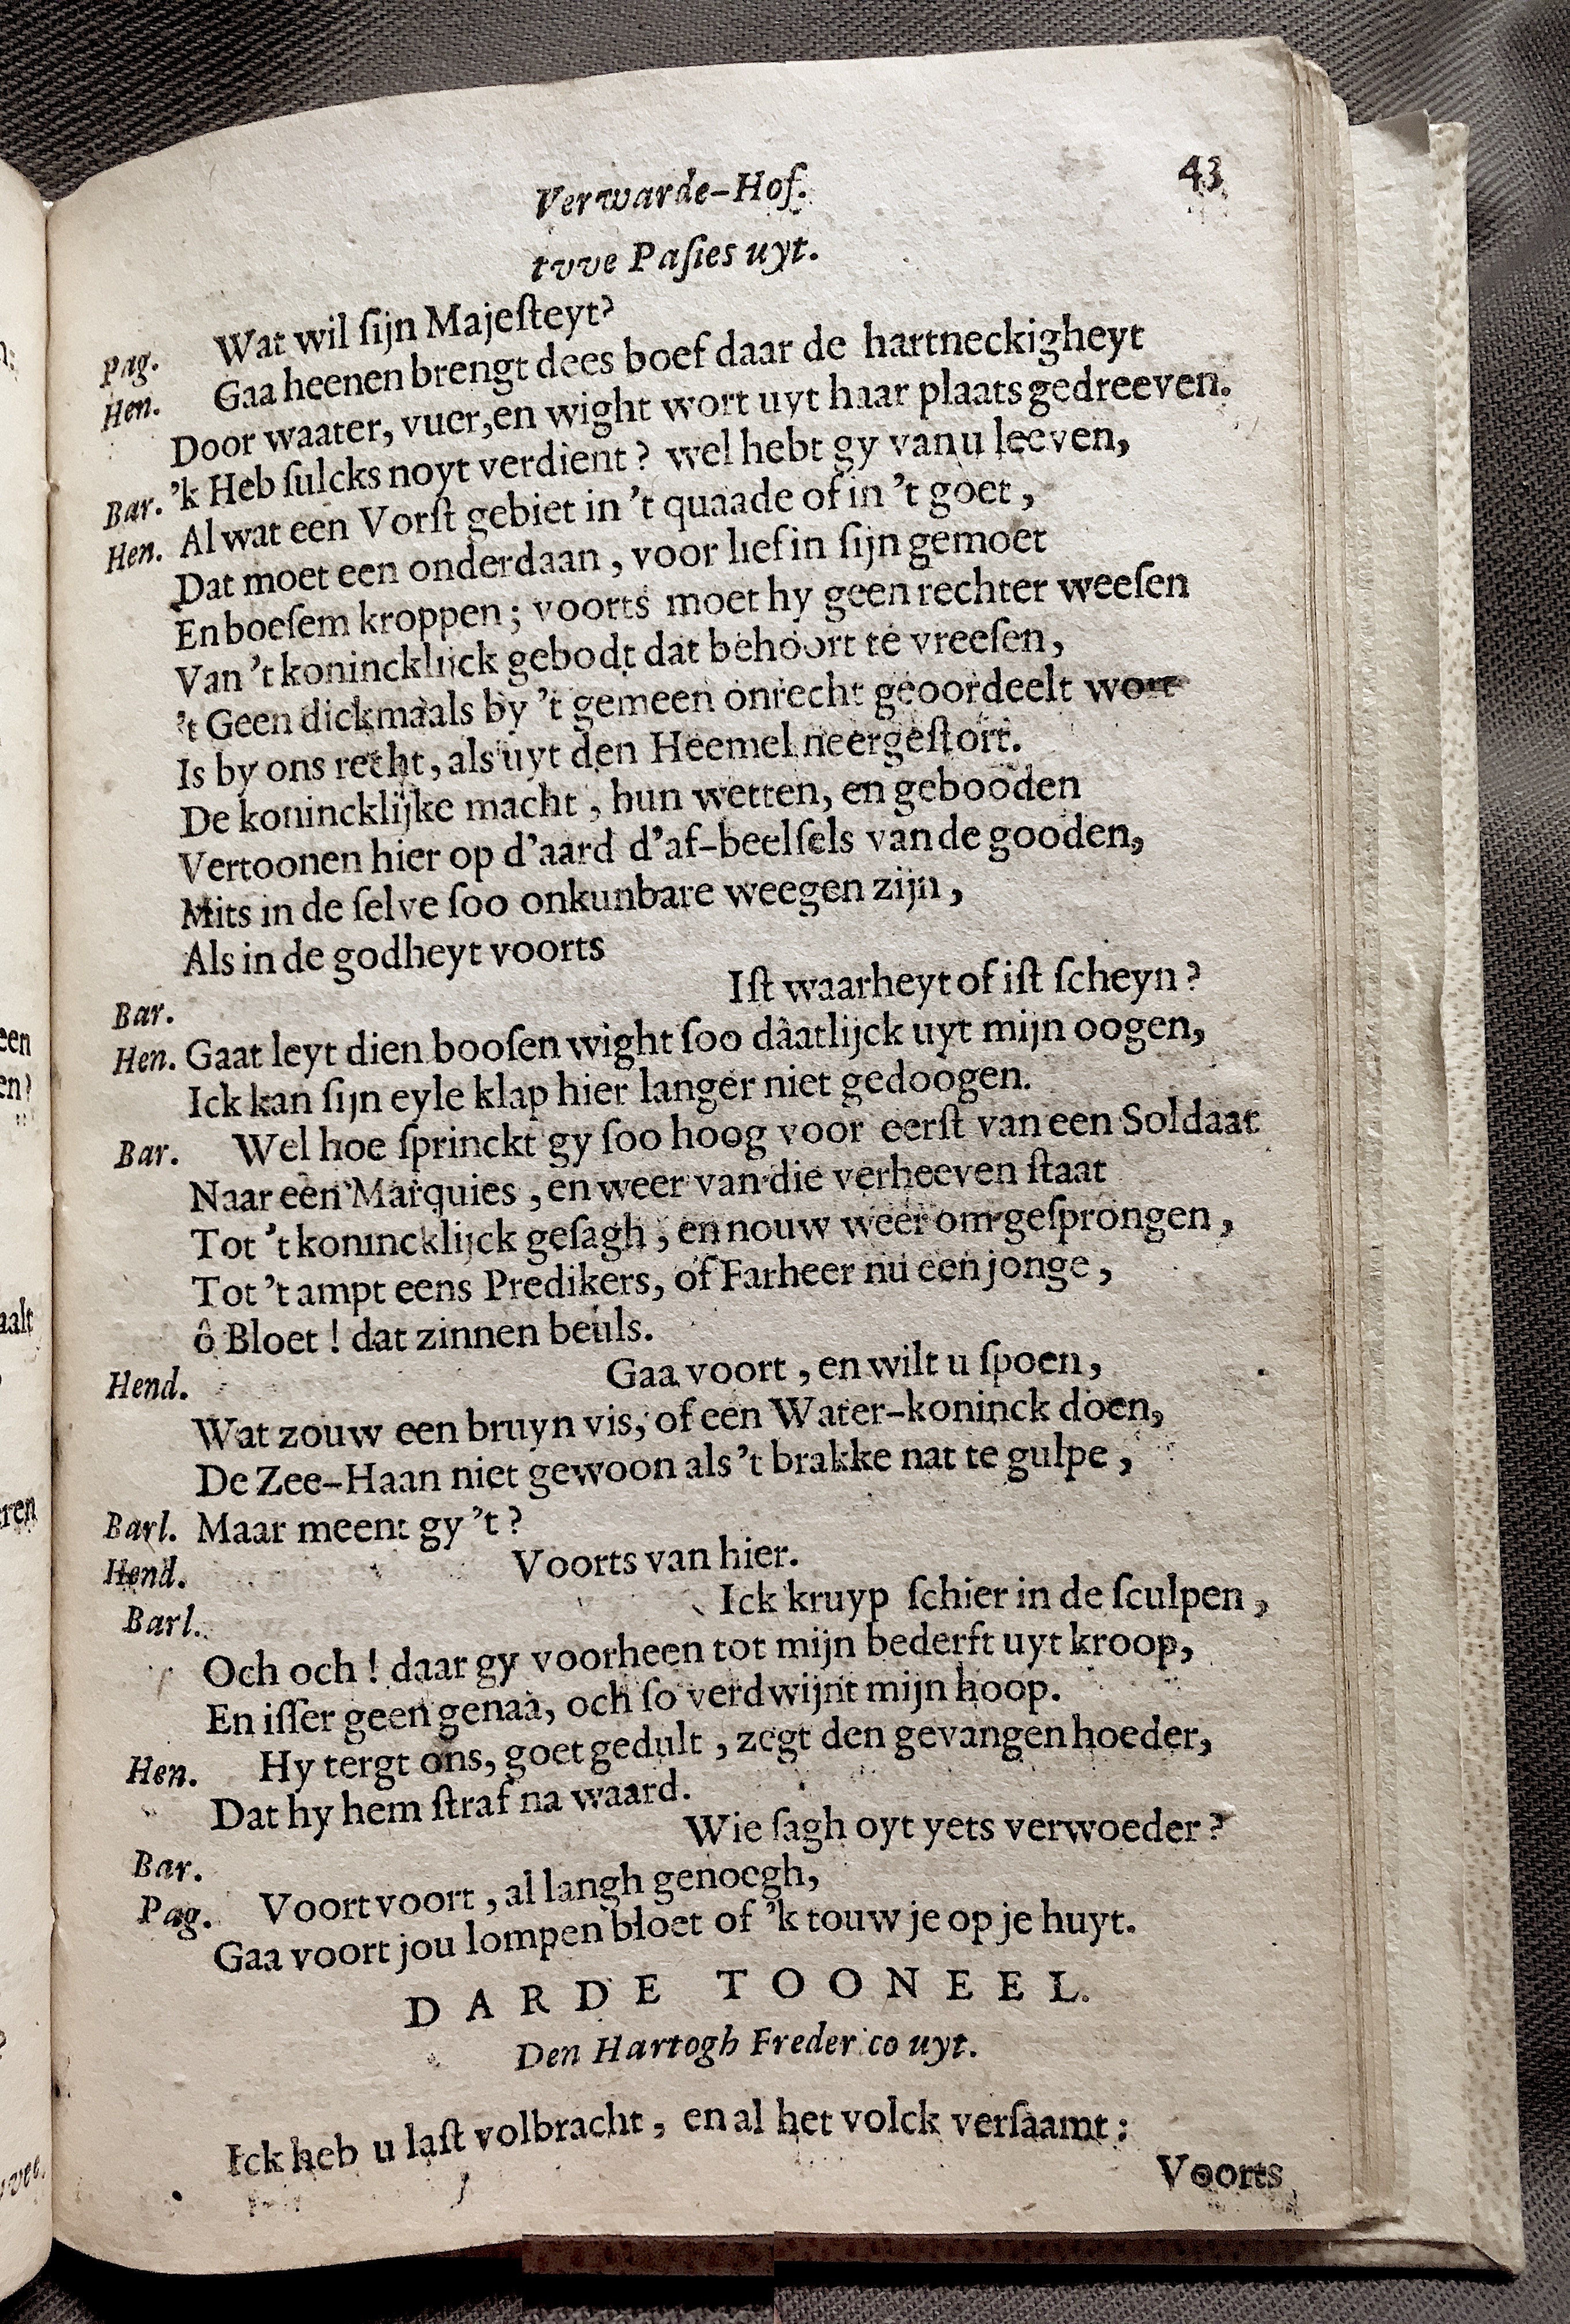 Verwarde-Hof. 43
tvve Pasies uyt.
Pag. Wat wil ſijn Majeſteyt?
Hen. Gaa heenen brengt dees boef daar de hartneckigheyt
Door waater, vuer, en wight wort uyt haar plaats gedreeven.
Bar. 'k Heb ſulcks noyt verdient? wel hebt gy van u leeven,
Hen. Al wat een Vorſt gebiet in 't quaade of in 't goet,
Dat moet een onderdaan, voor lief in ſijn gemoet
En boeſem kroppen; voorts moet hy geen rechter weeſen
Van 't koninckliick gebodt dat behoort te vreeſen,
't Geen dickmaals by 't gemeen onrecht geoordeelt wort
Is by ons recht, als uyt den Heemel neergeſtort.
De konincklijke macht, hun wetten, en gebooden
Vertoonen hier op d'aard d'af-beelſels van de gooden,
Mits in de ſelve ſoo onkunbare weegen zijn,
Als in de godheyt voorts
Bar. Iſt waarheyt of iſt ſcheyn?
Hen. Gaat leyt dien booſen wight ſoo dâatlijck uyt mijn oogen,
Ick kan ſijn eyle klap hier langer niet gedoogen.
Bar. Wel hoe ſprinckt gy ſoo hoog voor eerſt van een Soldaat
Naar een Marquies, en weer van die verheeven ſtaat
Tot 't konincklijck geſagh, en nouw weer om geſprongen,
Tot 't ampt eens Predikers, of Farheer nu een jonge,
ô Bloet! dat zinnen beuls.
Hend. Gaa voort, en wilt u ſpoen,
Wat zouw een bruyn vis, of een Water-koninck doen,
De Zee-Haan niet gewoon als 't brakke nat te gulpe,
Barl. Maar meent gy 't?
Hend. Voorts van hier.
Barl. Ick kruyp ſchier in de ſculpen,
Och och! daar gy voorheen tot mijn bederft uyt kroop,
En iſſer geen genaa, och ſo verdwijnt mijn hoop.
Hen. Hy tergt ons, goet gedult, zegt den gevangen hoeder,
Dat hy hem ſtraf na waard.
Bar. Wie ſagh oyt yets verwoeder?
Pag. Voort voort, al langh genoegh,
Gaa voort jou lompen bloet of 'k touw je op je huyt.
DARDE TOONEEL.
Den Hartogh Frederico uyt.
Ick heb u laſt volbracht, en al het volck verſaamt:
Voorts